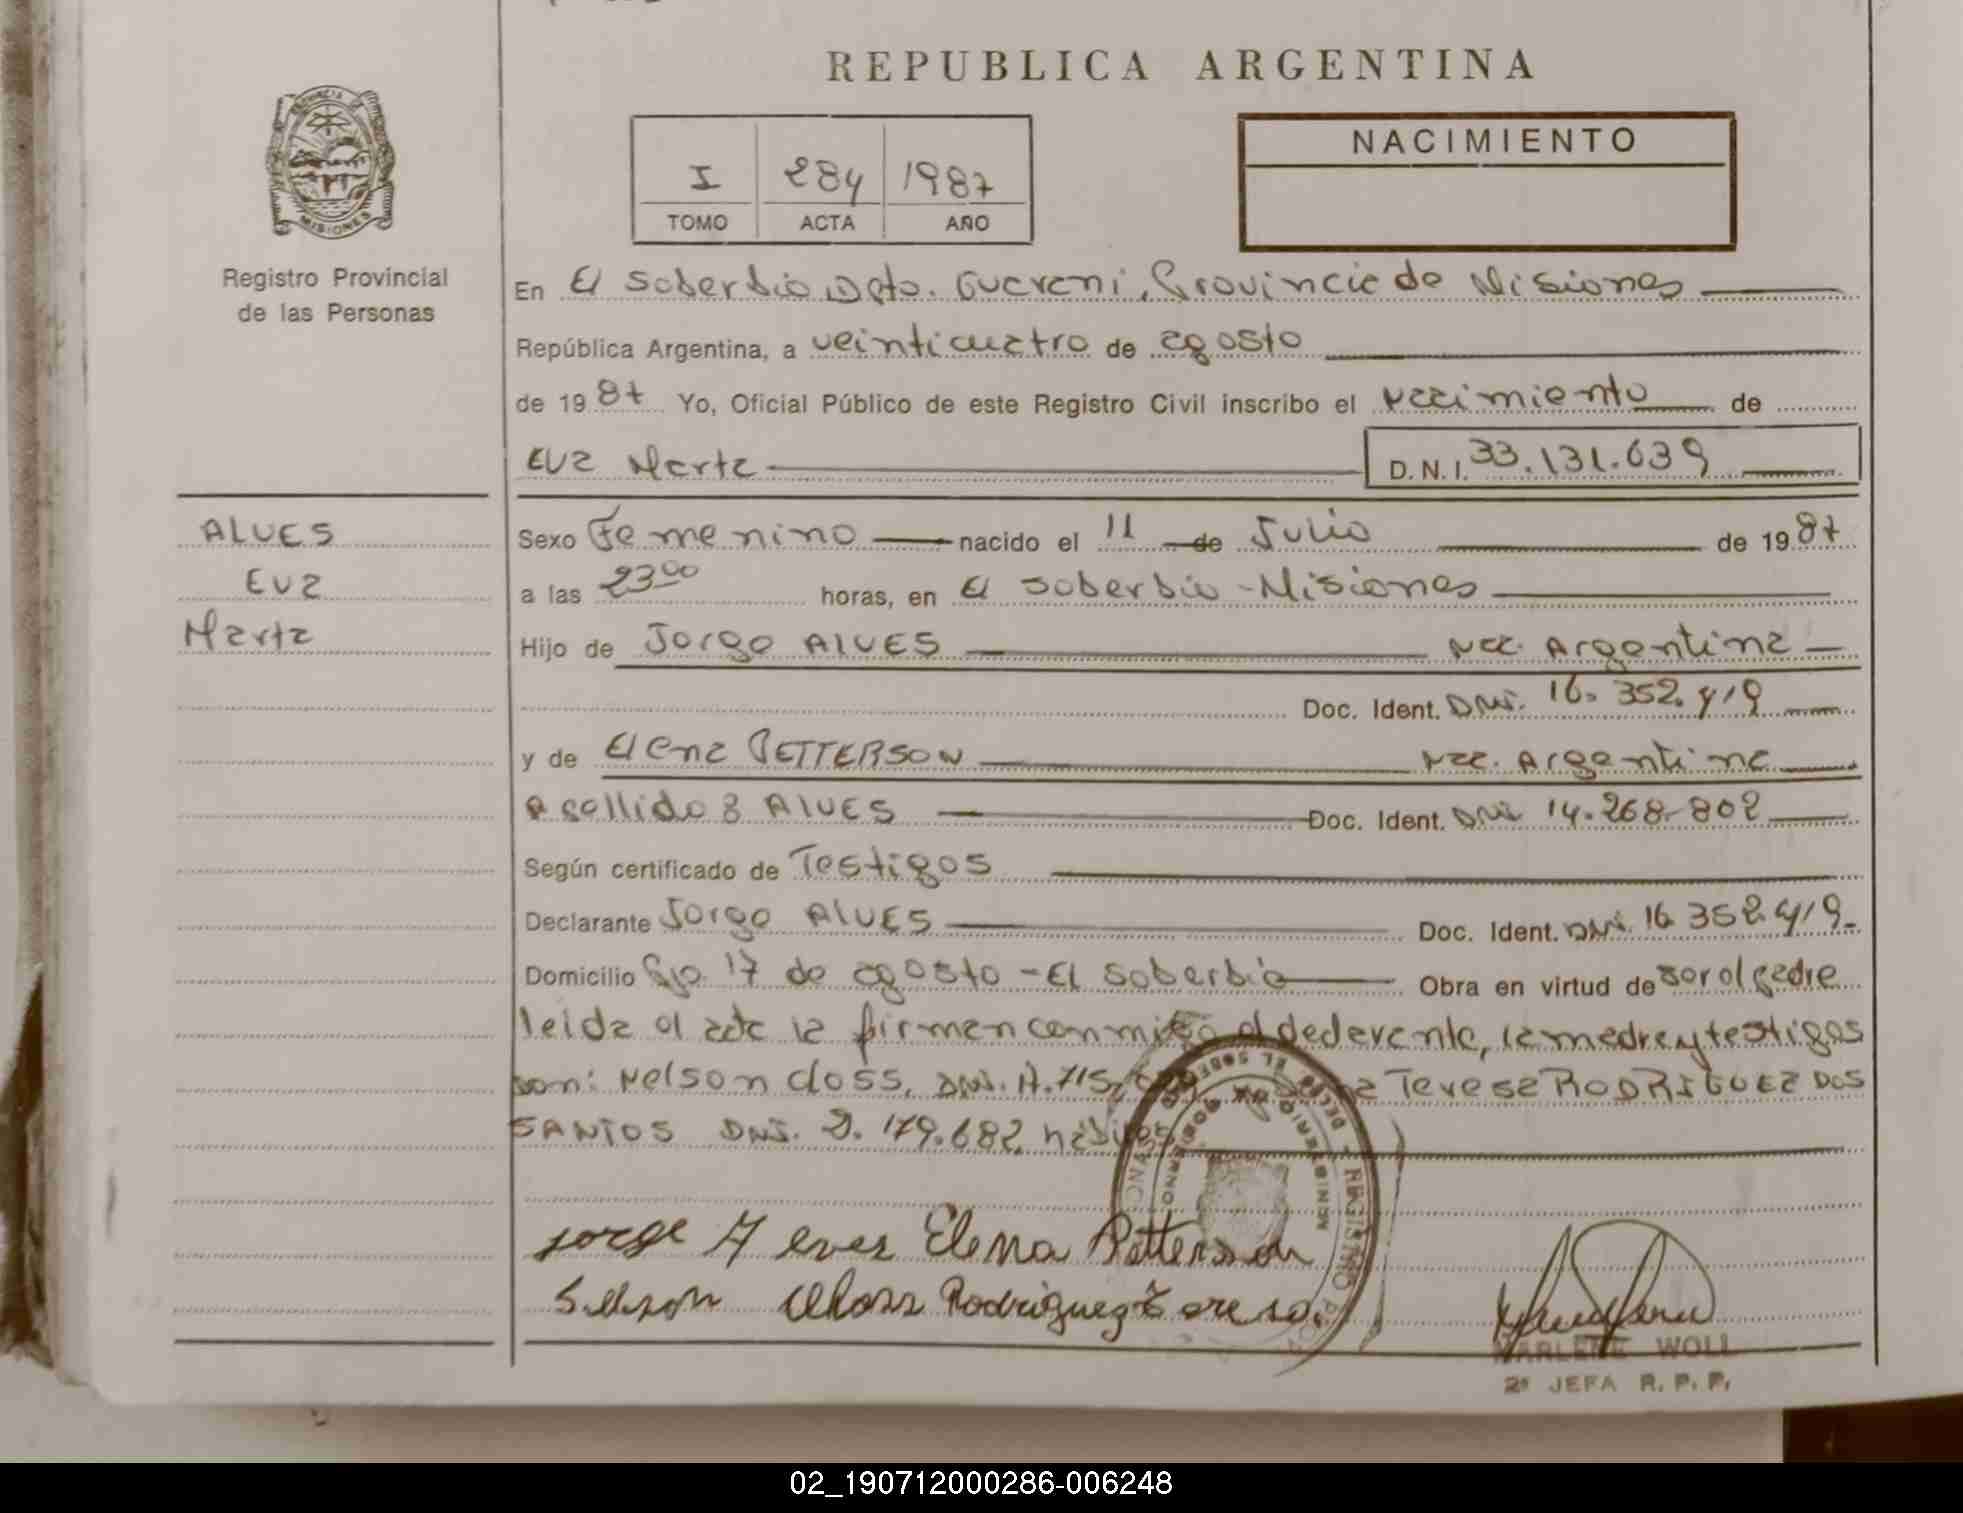 REPUBLICA ARGENTINA
I 284 1987
TOMO ACTA AÑO
NACIMIENTO
MISIONES
Registro Provincial
de las Personas
En El Soberbio, Dpto. Guarani, Provincia de Misiones
República Argentina, a veinticuatro de agosto
de 1987 Yo, Oficial Público de este Registro Civil inscribo el nacimiento de
Eva Marta D.N.I. 33.131.639
ALVES
Eva
Marta
Sexo Femenino nacido el 11 de Julio de 1987
a las 23⁰⁰ horas, en El Soberbio - Misiones
Hijo de Jorge ALVES Nac. Argentina
Doc. Ident. DNI. 16.352.419
y de Elena PETTERSON Nac. Argentina
Apellido 8 ALVES Doc. Ident. DNI 14.268.802
Según certificado de Testigos
Declarante Jorge ALVES Doc. Ident. DNI. 16.352.419
Domicilio 17 de agosto - El Soberbio Obra en virtud de ser el padre
leida el acta la firman conmigo el declarante, la madre y testigos
son: Nelson closs, DNI. Teresa RODRIGUEZ DOS
SANTOS DNI. 179.682, hábiles
Jorge Elena Petterson
Closs Rodriguez Teresa
MARLENE WOLL
2ª JEFA R. P. P.
02_190712000286-006248